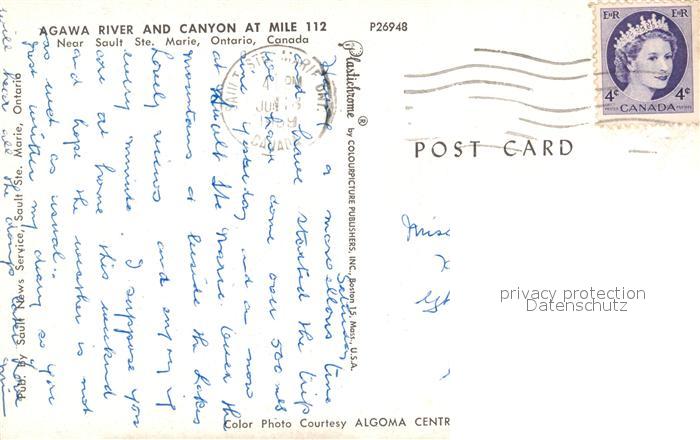 AGAWA RIVER AND CANYON AT MILE 112
Near Sault Ste. Marie, Ontario, Canada
P26948
Plastichrome ® by COLOURPICTURE PUBLISHERS, INC., Boston 15, Mass., U.S.A.
Pub. by Sault News Service, Sault Ste. Marie, Ontario
Color Photo Courtesy ALGOMA CENTR
EIIR EIIR
4¢ 4¢
CANADA
SAULT STE. MARIE ONT.
PM
JUN
CANADA
POST CARD
privacy protection
Datenschutz
Saturday
a marvellous time
and have started the trip
we have done over 500 mls
since yesterday and are now
at Sault Ste Marie. Over the
mountains & beside the Lakes
lovely views and enjoy
every minute. I suppose you
are at home this weekend
and hope the weather is not
as wet as usual.
not written my diary so you
will hear all the
Miss